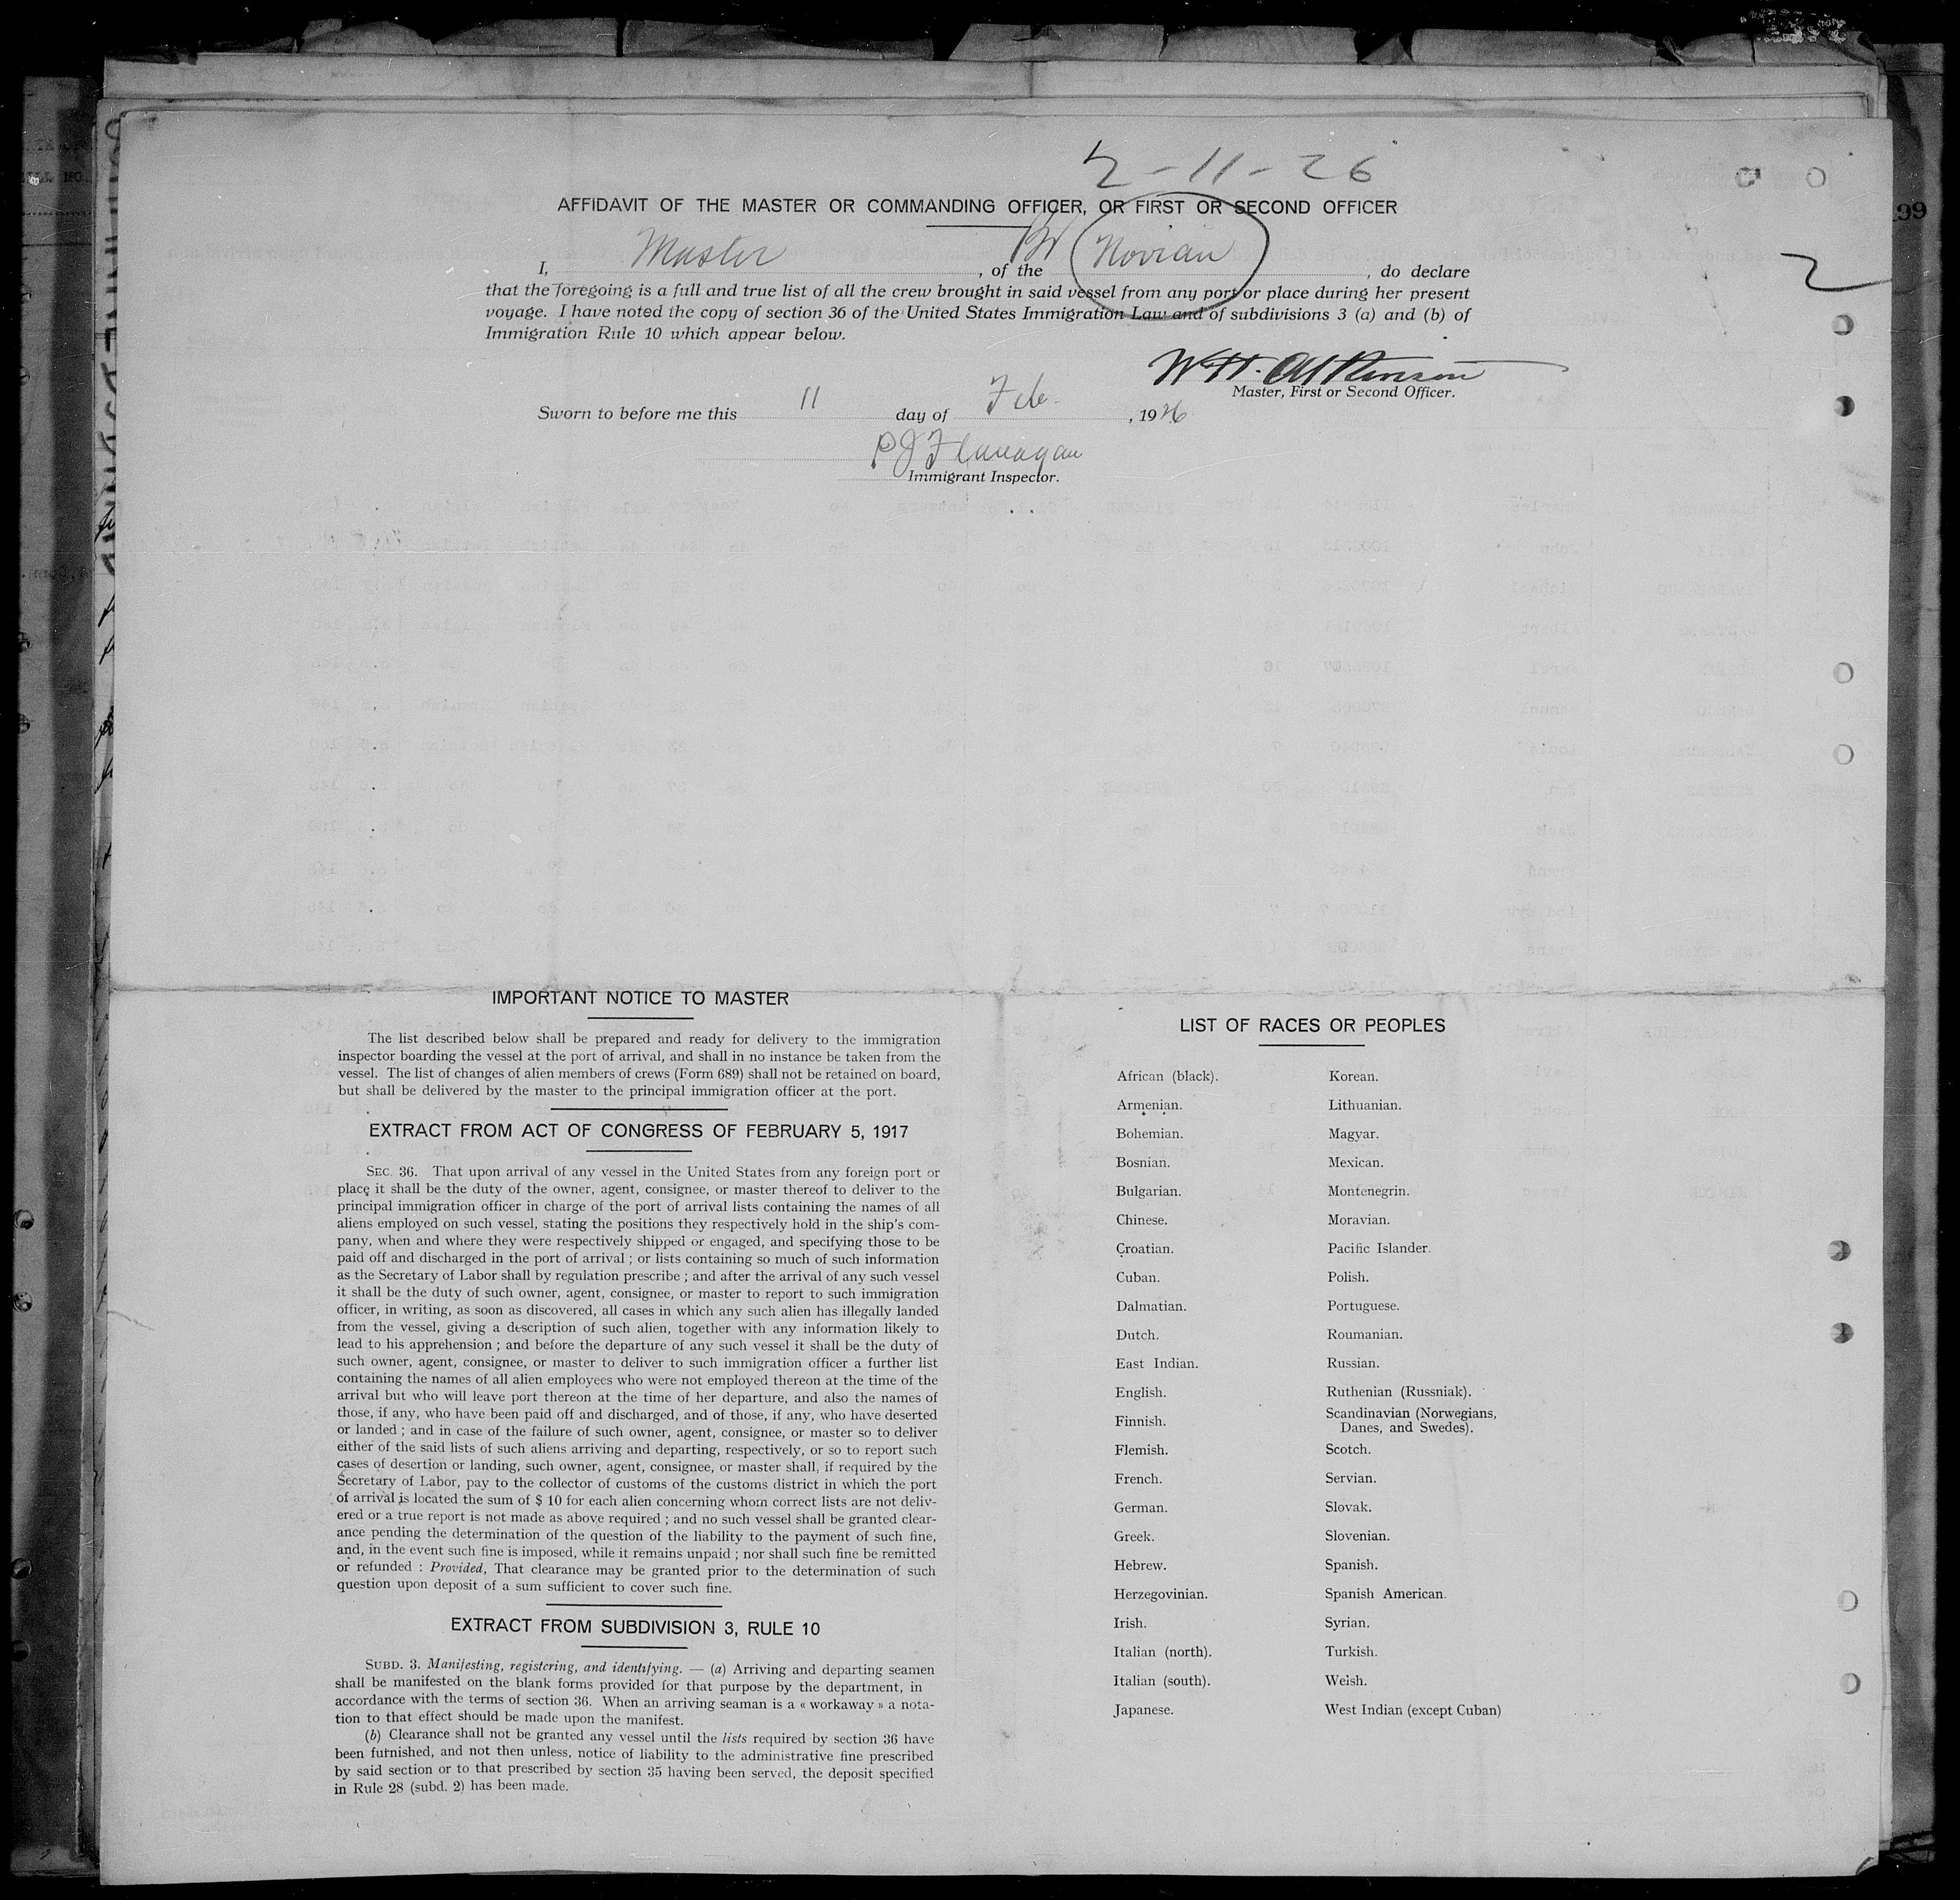 2-11-26
AFFIDAVIT OF THE MASTER OR COMMANDING OFFICER, OR FIRST OR SECOND OFFICER
I, Master, of the Br Novian, do declare
2
that the foregoing is a full and true list of all the crew brought in said vessel from any port or place during her present
voyage. I have noted the copy of section 36 of the United States Immigration Law and of subdivisions 3 (a) and (b) of
Immigration Rule 10 which appear below.
W.H. Atkinson
Master, First or Second Officer.
Sworn to before me this 11 day of Feb., 1926
P J Flanagan
Immigrant Inspector.
IMPORTANT NOTICE TO MASTER
The list described below shall be prepared and ready for delivery to the immigration
inspector boarding the vessel at the port of arrival, and shall in no instance be taken from the
vessel. The list of changes of alien members of crews (Form 689) shall not be retained on board,
but shall be delivered by the master to the principal immigration officer at the port.
EXTRACT FROM ACT OF CONGRESS OF FEBRUARY 5, 1917
SEC. 36. That upon arrival of any vessel in the United States from any foreign port or
place it shall be the duty of the owner, agent, consignee, or master thereof to deliver to the
principal immigration officer in charge of the port of arrival lists containing the names of all
aliens employed on such vessel, stating the positions they respectively hold in the ship's com-
pany, when and where they were respectively shipped or engaged, and specifying those to be
paid off and discharged in the port of arrival ; or lists containing so much of such information
as the Secretary of Labor shall by regulation prescribe ; and after the arrival of any such vessel
it shall be the duty of such owner, agent, consignee, or master to report to such immigration
officer, in writing, as soon as discovered, all cases in which any such alien has illegally landed
from the vessel, giving a description of such alien, together with any information likely to
lead to his apprehension ; and before the departure of any such vessel it shall be the duty of
such owner, agent, consignee, or master to deliver to such immigration officer a further list
containing the names of all alien employees who were not employed thereon at the time of the
arrival but who will leave port thereon at the time of her departure, and also the names of
those, if any, who have been paid off and discharged, and of those, if any, who have deserted
or landed ; and in case of the failure of such owner, agent, consignee, or master so to deliver
either of the said lists of such aliens arriving and departing, respectively, or so to report such
cases of desertion or landing, such owner, agent, consignee, or master shall, if required by the
Secretary of Labor, pay to the collector of customs of the customs district in which the port
of arrival is located the sum of $ 10 for each alien concerning whom correct lists are not deliv-
ered or a true report is not made as above required ; and no such vessel shall be granted clear-
ance pending the determination of the question of the liability to the payment of such fine,
and, in the event such fine is imposed, while it remains unpaid ; nor shall such fine be remitted
or refunded : Provided, That clearance may be granted prior to the determination of such
question upon deposit of a sum sufficient to cover such fine.
EXTRACT FROM SUBDIVISION 3, RULE 10
SUBD. 3. Manifesting, registering, and identifying. — (a) Arriving and departing seamen
shall be manifested on the blank forms provided for that purpose by the department, in
accordance with the terms of section 36. When an arriving seaman is a « workaway » a nota-
tion to that effect should be made upon the manifest.
(b) Clearance shall not be granted any vessel until the lists required by section 36 have
been furnished, and not then unless, notice of liability to the administrative fine prescribed
by said section or to that prescribed by section 35 having been served, the deposit specified
in Rule 28 (subd. 2) has been made.
LIST OF RACES OR PEOPLES
African (black).
Armenian.
Bohemian.
Bosnian.
Bulgarian.
Chinese.
Croatian.
Cuban.
Dalmatian.
Dutch.
East Indian.
English.
Finnish.
Flemish.
French.
German.
Greek.
Hebrew.
Herzegovinian.
Irish.
Italian (north).
Italian (south).
Japanese.
Korean.
Lithuanian.
Magyar.
Mexican.
Montenegrin.
Moravian.
Pacific Islander.
Polish.
Portuguese.
Roumanian.
Russian.
Ruthenian (Russniak).
Scandinavian (Norwegians,
Danes, and Swedes).
Scotch.
Servian.
Slovak.
Slovenian.
Spanish.
Spanish American.
Syrian.
Turkish.
Welsh.
West Indian (except Cuban)